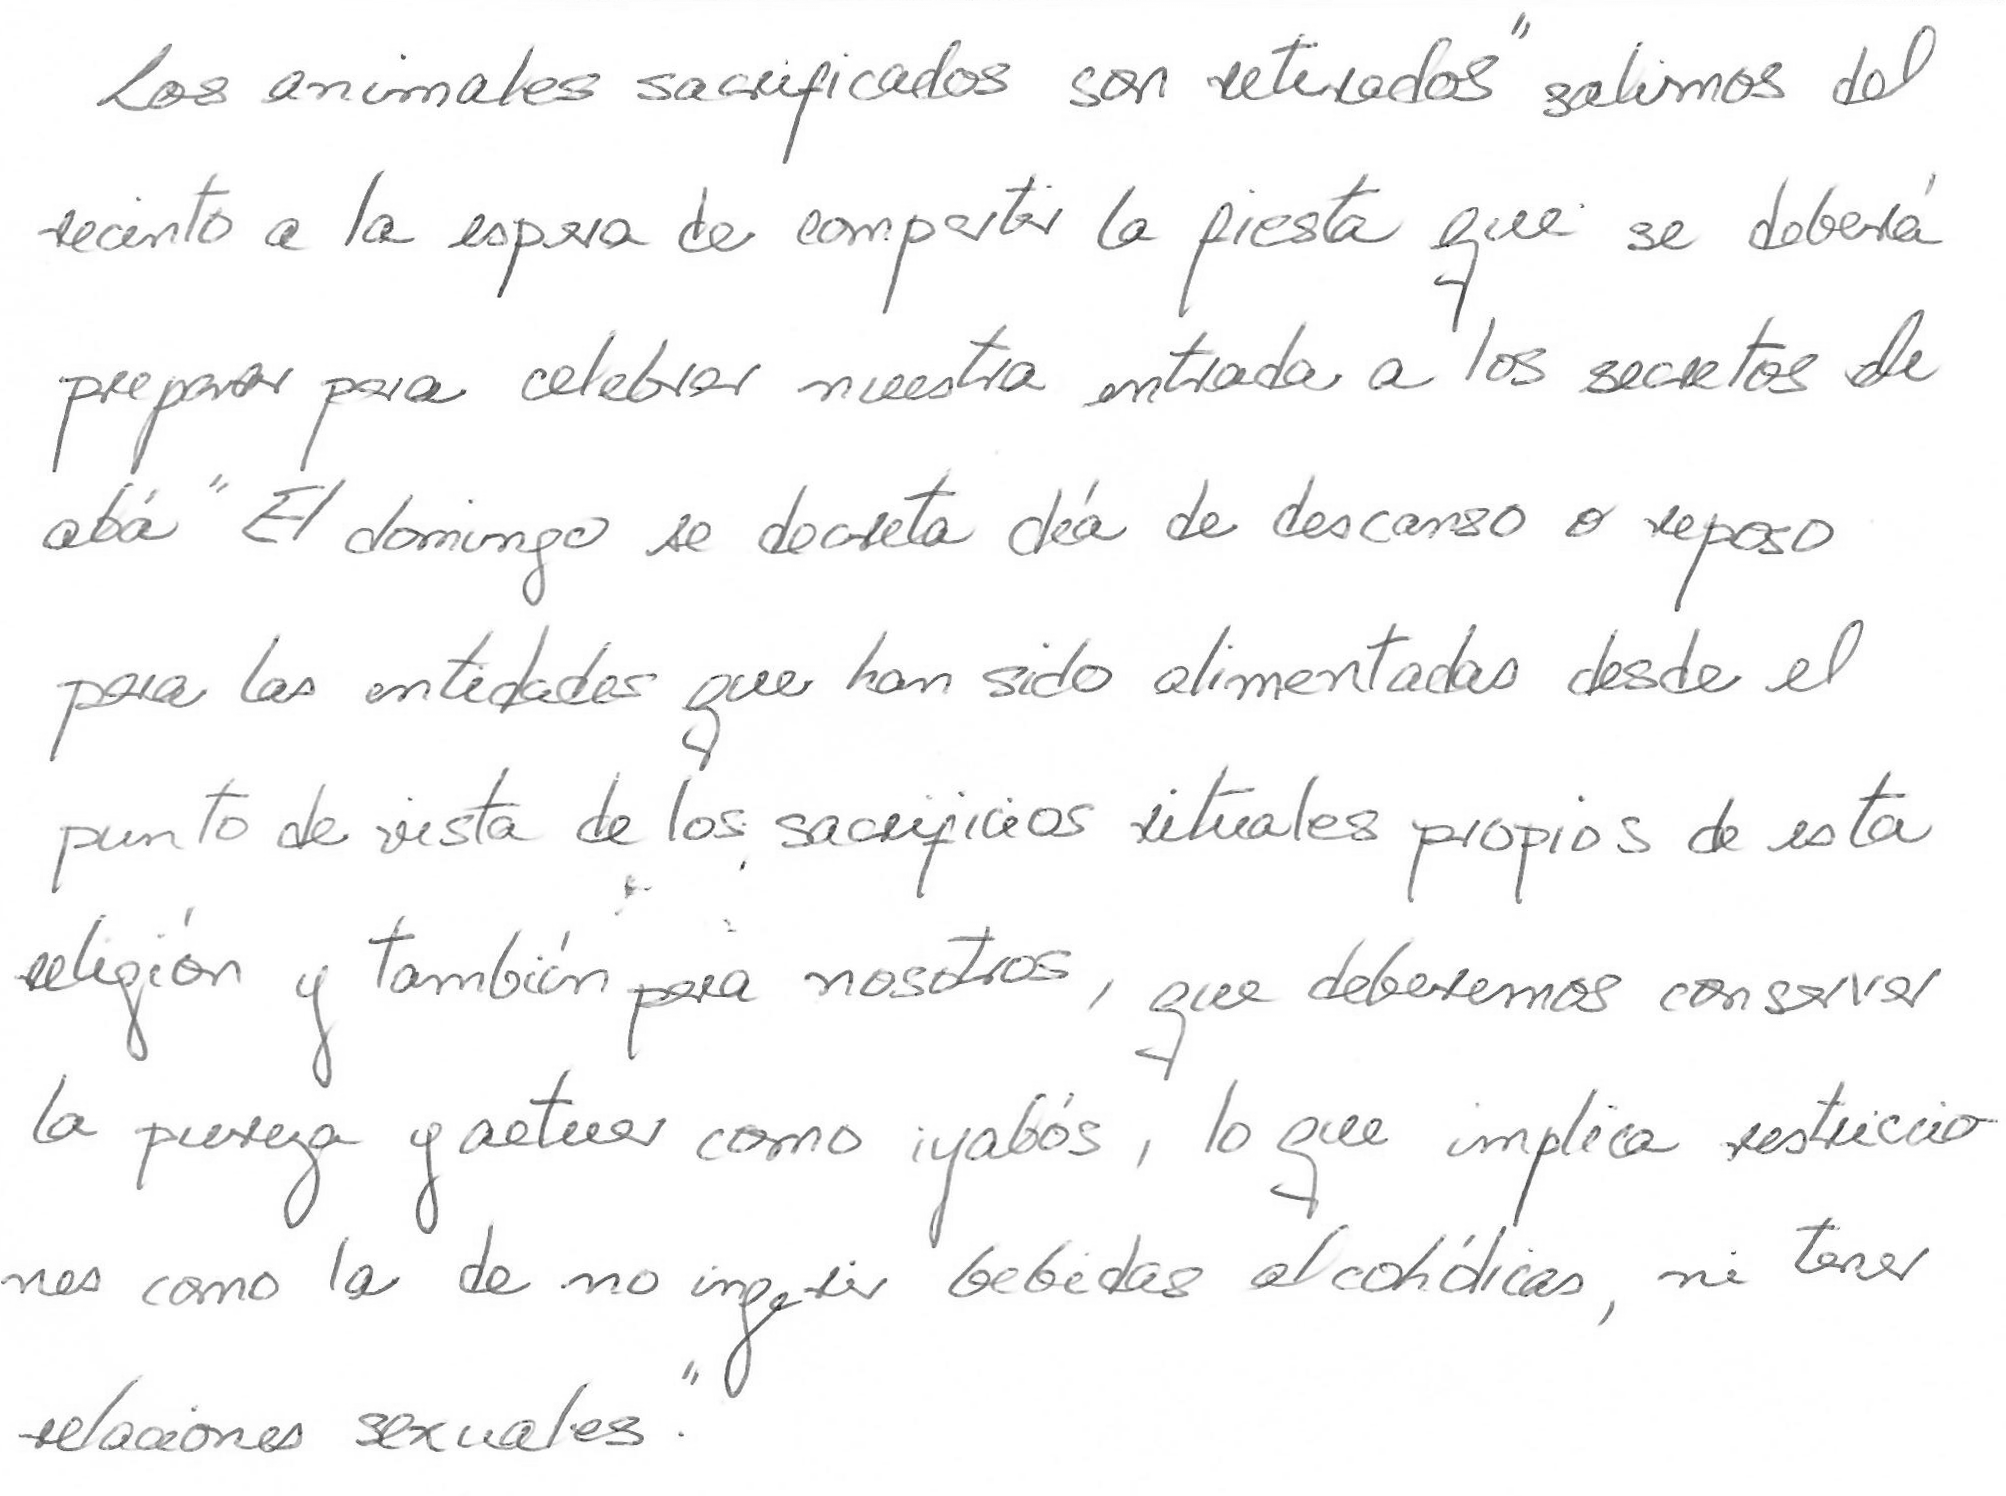 Los animales sacrificados son retirados" salimos del
recinto a la espera de compartir la fiesta que se deberá
preparar para celebrar nuestra entrada a los secretos de
abá" El domingo se decreta día de descanso o reposo
para las entidades que han sido alimentadas desde el
punto de vista de los sacrificios rituales propios de esta
religión y también para nosotros, que deberemos conservar
la pureza y actuar como iyabós, lo que implica restriccio
nes como la de no ingerir bebidas alcohólicas, ni tener
relaciones sexuales."